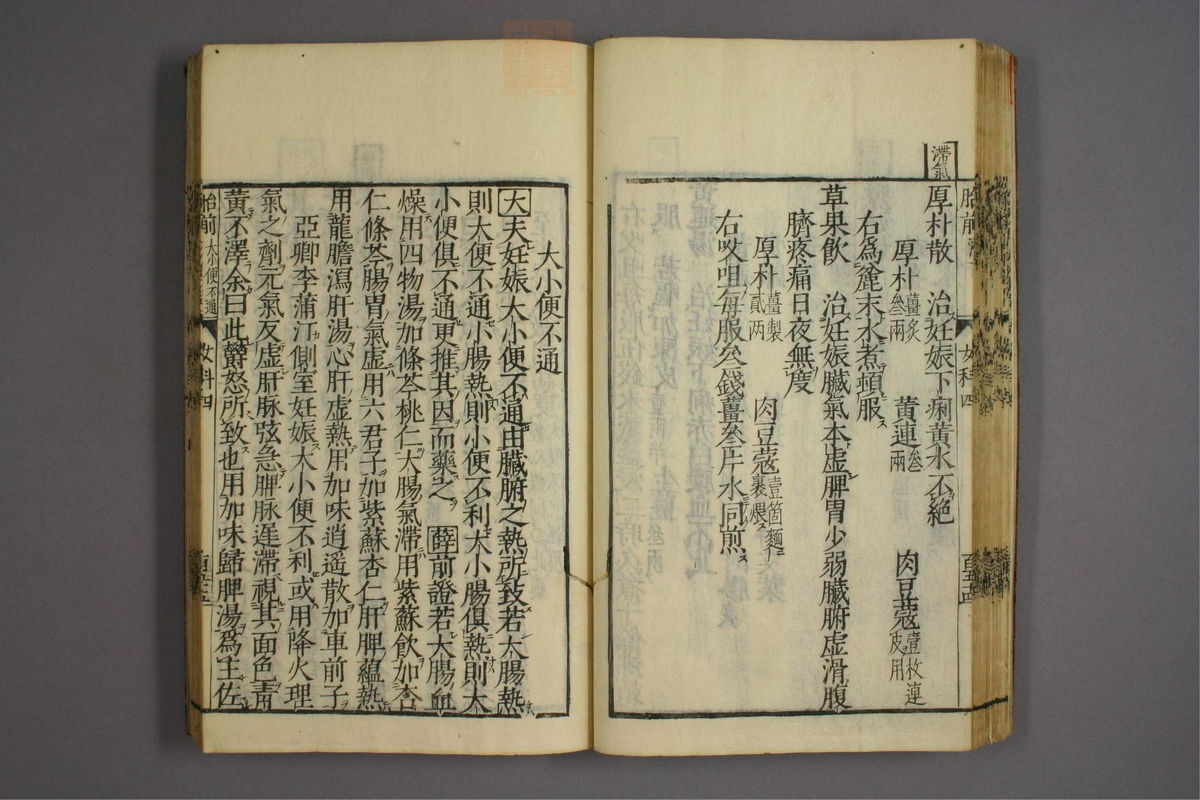 滯氣
厚朴散　治妊娠下痢黃水不絕
厚朴薑炙叁兩　黃連叁兩　肉豆蔻壹枚連皮用
右爲麄末水煮頓服
草果飮　治妊娠臟氣本虛脾胃少弱臟腑虛滑腹
臍疼痛日夜無度
厚朴薑製貳兩　肉豆蔻壹箇麵裹煨
右㕮咀每服叁錢薑叁片水同煎
胎前　女科四
大小便不通
大夫妊娠大小便不通由臟腑之熱所致若大腸熱
則大便不通小腸熱則小便不利大小腸俱熱則大
小便俱不通更推其因而藥之　薛前證若大腸血
燥用四物湯加條芩桃仁大腸氣滯用紫蘇飮加杏
仁條芩腸胃氣虛用六君子加紫蘇杏仁肝脾蘊熱
用龍膽瀉肝湯心肝虛熱用加味逍遥散加車前子
亞卿李蒲汀側室妊娠大小便不利或用降火理
氣之劑元氣反虛肝脉弦急脾脉遲滯視其面色靑
黃不澤余曰此鬱怒所致也用加味歸脾湯爲主佐
胎前　大小便不通　女科四